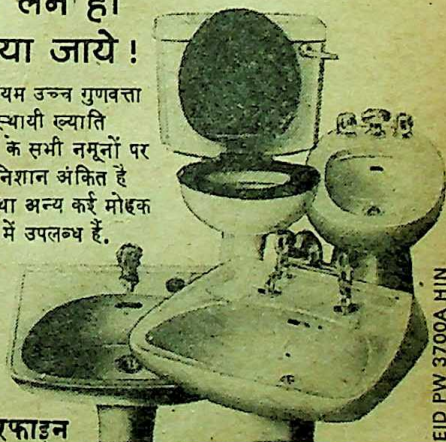 लेन हो
या जाये !
यम उच्च गुणवत्ता
स्थायी ख्याति
के सभी नमूनों पर
निशान अंकित है
था अन्य कई मोहक
में उपलब्ध हैं.
रफाइन
EID PW 3700A HIN